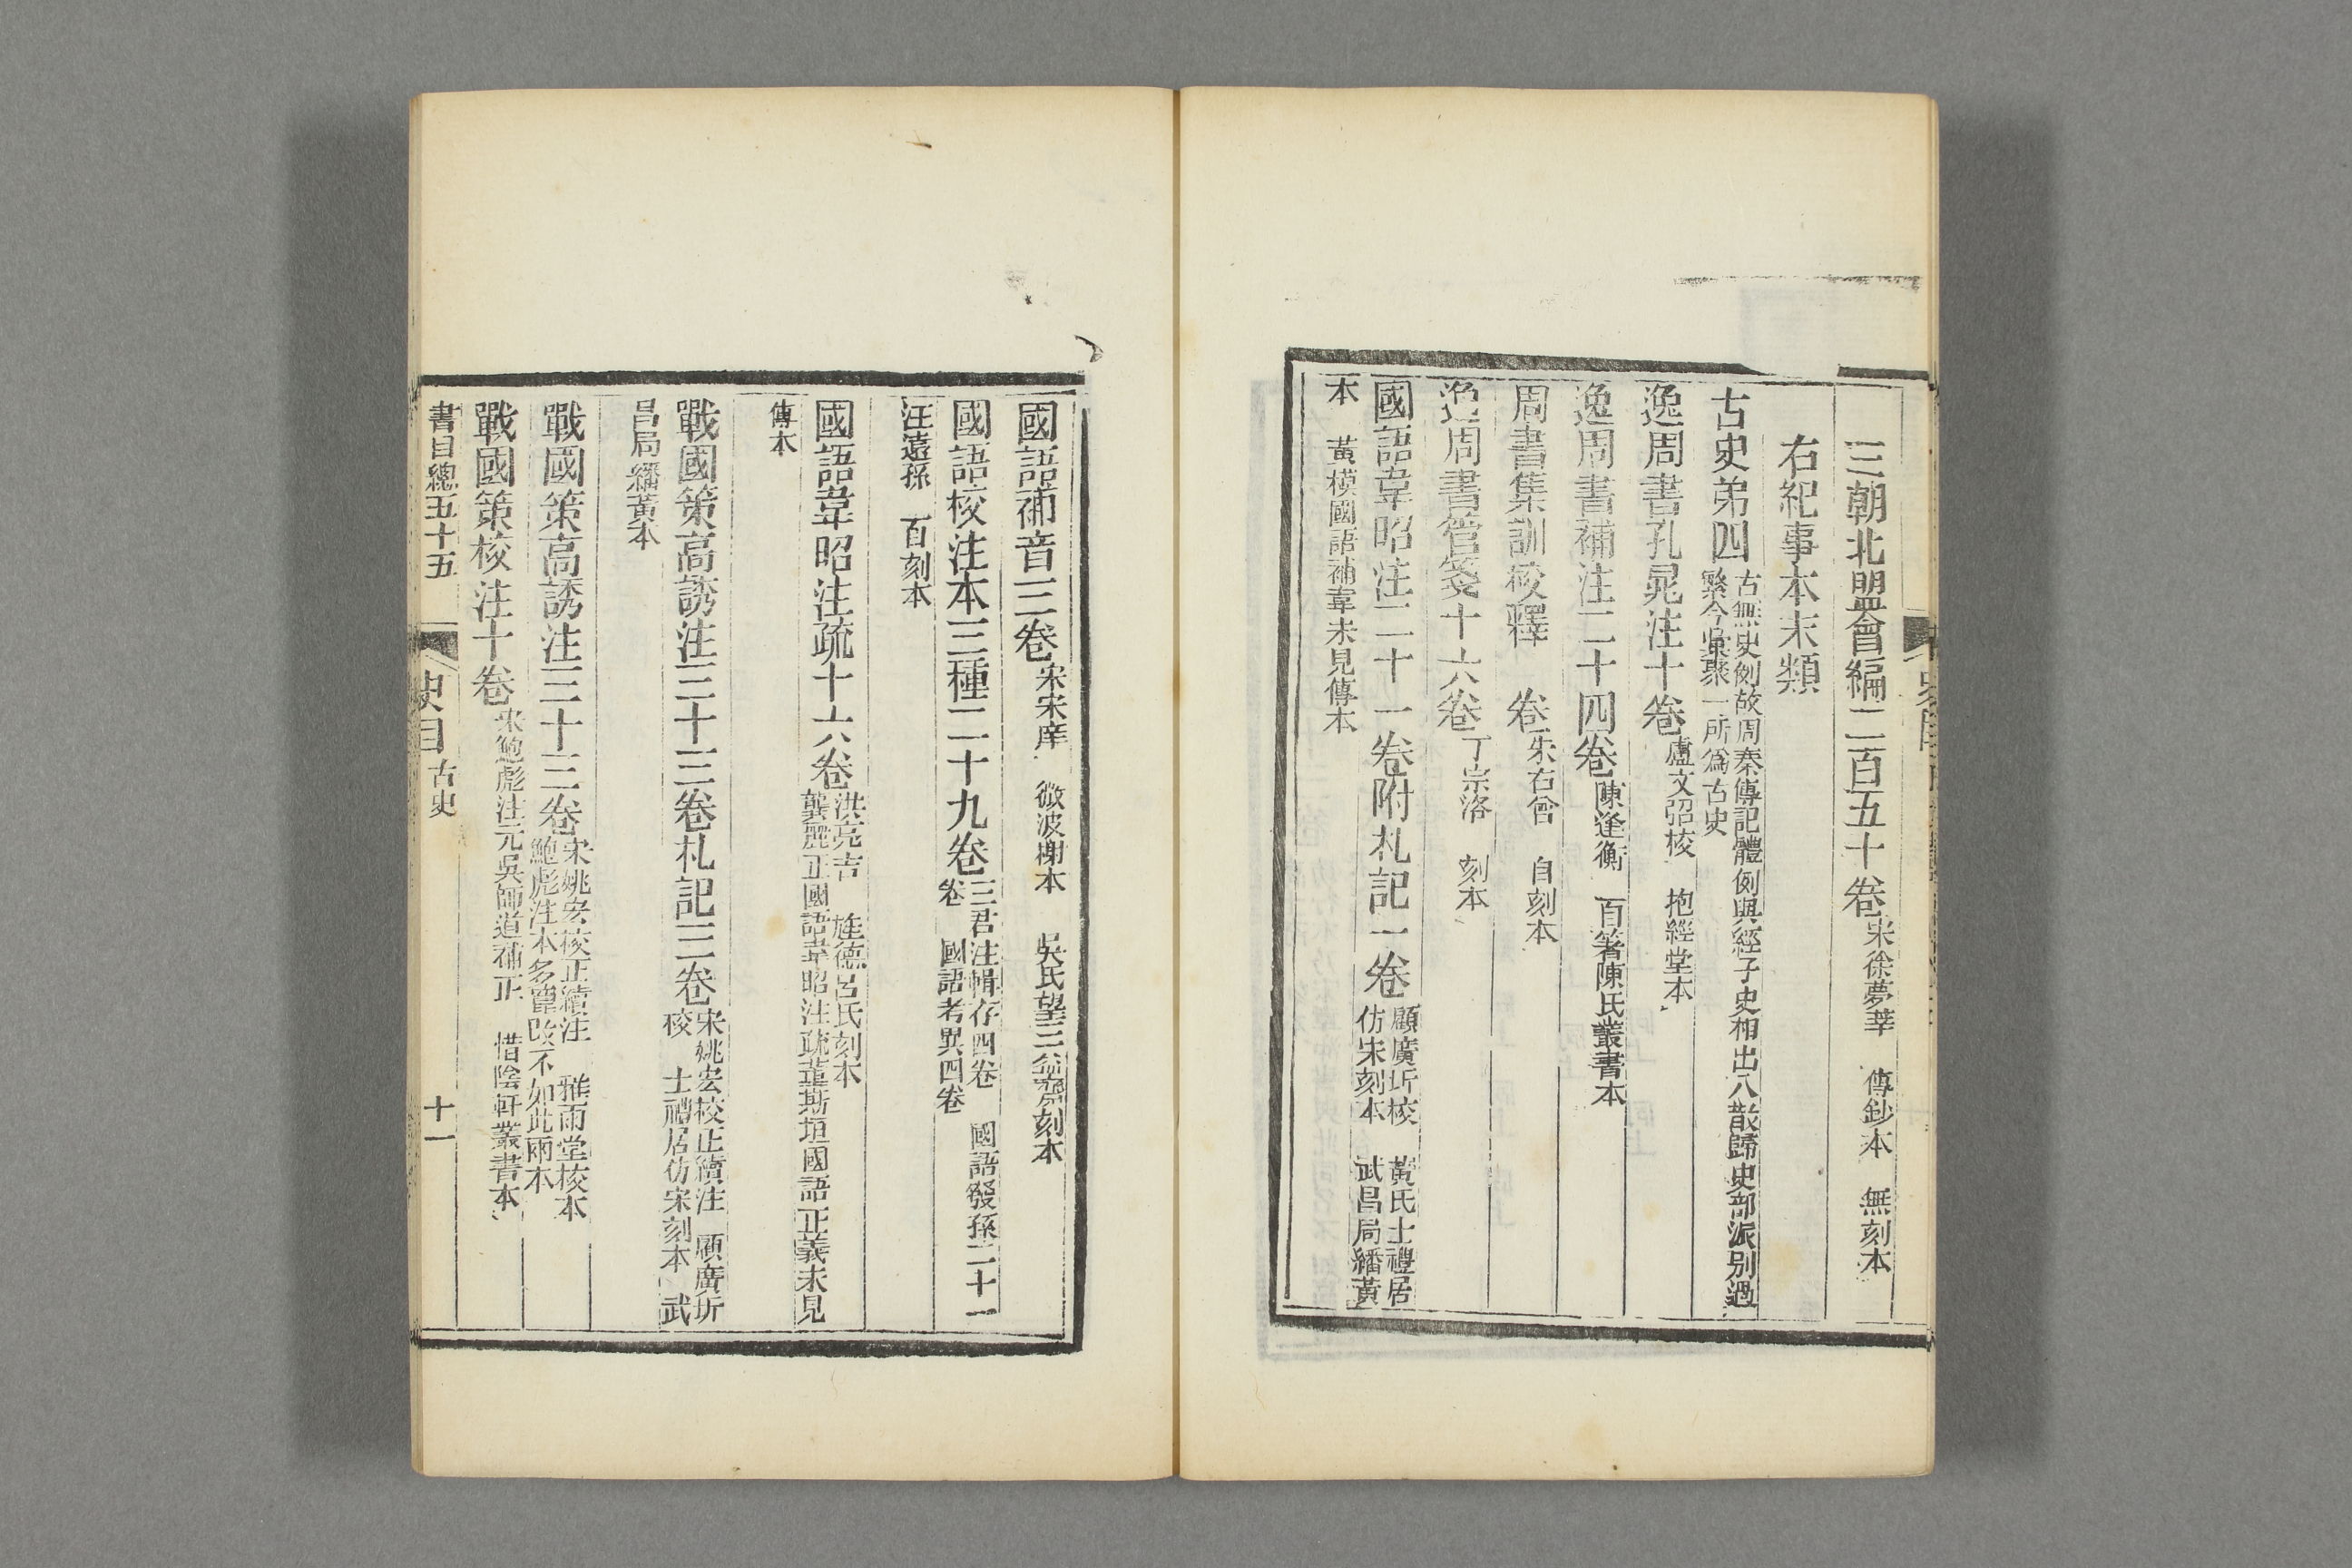 三朝北盟會編二百五十卷宋徐夢莘 傳鈔本 無刻本
右紀事本末類
古史弟四古無史例故周秦傳記體例與經子史相出入散歸史部派別過
繁今彙聚一所爲古史
逸周書孔晁注十卷盧文弨校 抱經堂本
逸周書補注二十四卷陳逢衡 百箸陳氏叢書本
周書集訓校釋 卷朱右曾 自刻本
逸周書管箋十六卷丁宗洛 刻本
國語韋昭注二十一卷附札記一卷顧廣圻校 黃氏士禮居
仿宋刻本 武昌局繙黃
本 黃模國語補韋未見傳本
國語補音三卷宋宋庠 微波榭本 吳氏望三益齋刻本
國語校注本三種二十九卷三君注輯存四卷 國語發揮二十一
卷 國語考異四卷
汪遠孫 百刻本
國語韋昭注疏十六卷洪亮吉 旌德呂氏刻本
龔麗正國語韋昭注疏董斯垣國語正義未見
傳本
戰國策高誘注三十三卷札記三卷宋姚宏校正續注 顧廣圻
校 士禮居仿宋刻本 武
昌局繙黃本
戰國策高誘注三十三卷宋姚宏校正續注 雅雨堂校本
鮑彪注本多竄改不如此兩本
戰國策校注十卷宋鮑彪注元吳師道補正 惜陰軒叢書本
書目總五十五 史目 古史 十一